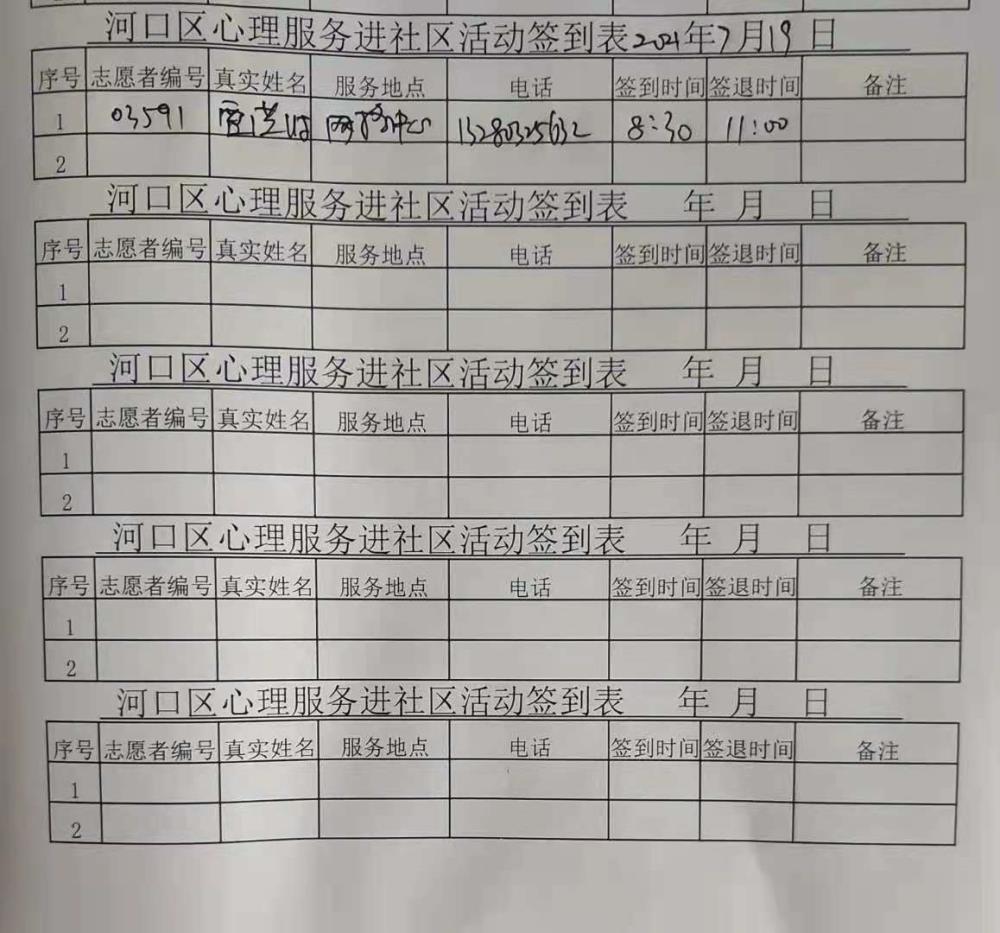 2
河口区心理服务进社区活动签到表2021年7月19日
序号 志愿者编号 真实姓名 服务地点 电话 签到时间 签退时间 备注
1 03591 网格中心 13280325632 8:30 11:00
2
河口区心理服务进社区活动签到表 年 月 日
序号 志愿者编号 真实姓名 服务地点 电话 签到时间 签退时间 备注
1
2
河口区心理服务进社区活动签到表 年 月 日
序号 志愿者编号 真实姓名 服务地点 电话 签到时间 签退时间 备注
1
2
河口区心理服务进社区活动签到表 年 月 日
序号 志愿者编号 真实姓名 服务地点 电话 签到时间 签退时间 备注
1
2
河口区心理服务进社区活动签到表 年 月 日
序号 志愿者编号 真实姓名 服务地点 电话 签到时间 签退时间 备注
1
2